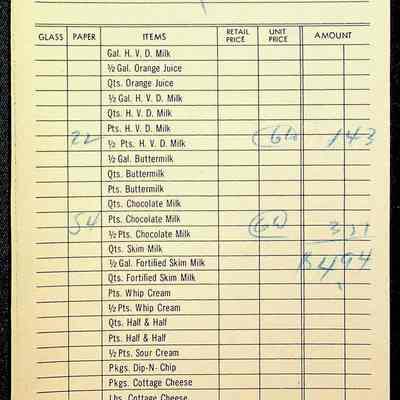 GLASS PAPER ITEMS RETAIL PRICE UNIT PRICE AMOUNT
Gal. H. V. D. Milk
½ Gal. Orange Juice
Qts. Orange Juice
½ Gal. H. V. D. Milk
Qts. H. V. D. Milk
Pts. H. V. D. Milk
22 ½ Pts. H. V. D. Milk 143
½ Gal. Buttermilk
Qts. Buttermilk
Pts. Buttermilk
Qts. Chocolate Milk
Pts. Chocolate Milk
54 ½ Pts. Chocolate Milk 351
Qts. Skim Milk
½ Gal. Fortified Skim Milk $494
Qts. Fortified Skim Milk
Pts. Whip Cream
½ Pts. Whip Cream
Qts. Half & Half
Pts. Half & Half
½ Pts. Sour Cream
Pkgs. Dip-N-Chip
Pkgs. Cottage Cheese
Lbs. Cottage Cheese